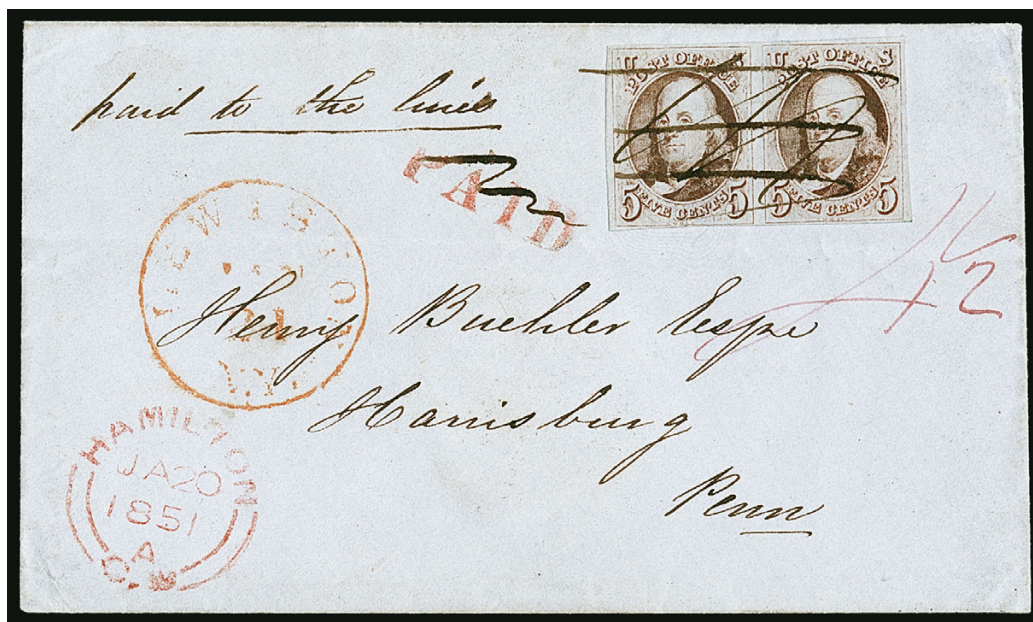 paid to the lines
PAID
U S
POST OFFICE
5 FIVE CENTS 5
U S
POST OFFICE
5 FIVE CENTS 5
LEWISTON
JAN
21
N.Y.
Henry Buehler Esqre
Harrisburg
Penn
HAMILTON
JA 20
1851
C.W